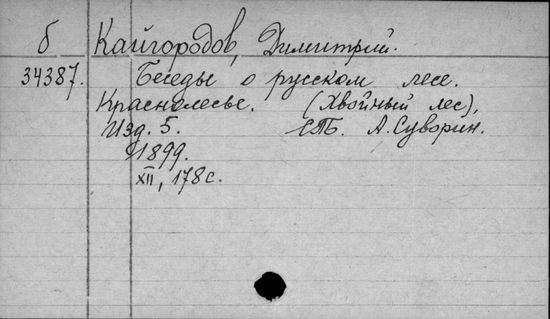 б Кайгородов, Димитрий.
34387. Беседы о русском лесе.
Краснолесье. (Хвойный лес),
Изд. 5. СПб. А. Суворин.
1899.
XII, 178 с.